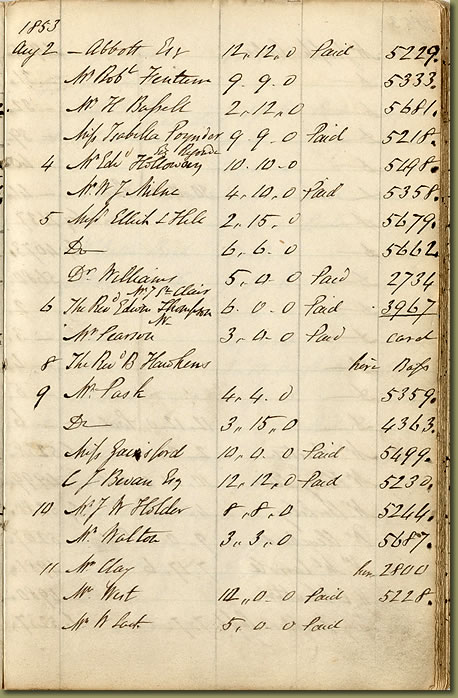 1853
Aug 2 — Abbott Esq 12,,12,,0 Paid 5229.
Mr Robt Fentum 9..9..0 5333.
Mr H Bussell 2,,12,,0 5681.
Miss Isabella Poynder 9..9..0 Paid 5218.
4 Mr Edwd Holloway 10..10..0 5498.
Mr W J Milne 4,,10,,0 Paid 5358
5 Messrs Elliot & Hill 2,,15,,0 5679.
Do 6,,6..0 5662
Dr Williams 5,,0..0 Paid 2734
Mr 7 St Clair
6 The Revd Edwin Thompson 6..0..0 Paid 3967
Mr
Mr Pearson 3,,0..0 Paid card
8 The Revd B Hawkins hire Bass
9 Mr Pask 4,,4..0 5359.
Do 3,,15,,0 4363.
Miss Gainsford 10,,0..0 Paid 5499.
C J Bevan Esq 12,,12,,0 Paid 5230.
10 Mr J W Holder 8,,8..0 5244.
Mr Walton 3,,3..0 5687.
11 Mr Clay hire 2800
Mr West 12,,0..0 Paid 5228.
Mr W 5,,0..0 Paid